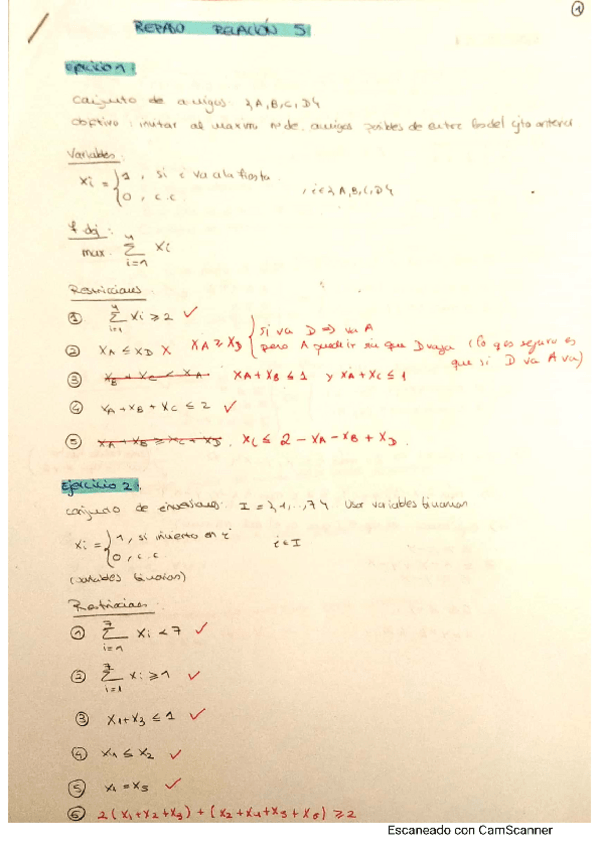 ①
REPASO RELACIÓN 5
Ejercicio 1:
Conjunto de amigos {A,B,C,D}
Objetivo: invitar al máximo nº de amigos posibles de entre los del cjto anterior
Variables:
xi = { 1, si i va a la fiesta
0, c.c. , i ∈ {A,B,C,D}
f. obj:
max. ∑ i=1 4 xi
Restricciones
① ∑ i=1 4 xi ≥ 2 ✓
② xA ≤ xD X xA ≥ xD { si va D ⇒ va A
pero A puede ir sin que D vaya (lo q es seguro es
que si D va A va)
③ xB + xC ≤ xA xA + xB ≤ 1 y xA + xC ≤ 1
④ xA + xB + xC ≤ 2 ✓
⑤ xA + xB ≥ xC + xD . xC ≤ 2 - xA - xB + xD .
Ejercicio 2:
conjunto de inversiones: I = {1,..,7} Usar variables binarias
xi = { 1, si invierto en i
0, c.c. i ∈ I
(variables binarias)
Restricciones:
① ∑ i=1 7 xi < 7 ✓
② ∑ i=1 7 xi ≥ 1 ✓
③ x1 + x3 ≤ 1 ✓
④ x4 ≤ x2 ✓
⑤ x1 = x5 ✓
⑥ 2(x1+x2+x3) + (x2+x4+x5+x6) ≥ 2
Escaneado con CamScanner